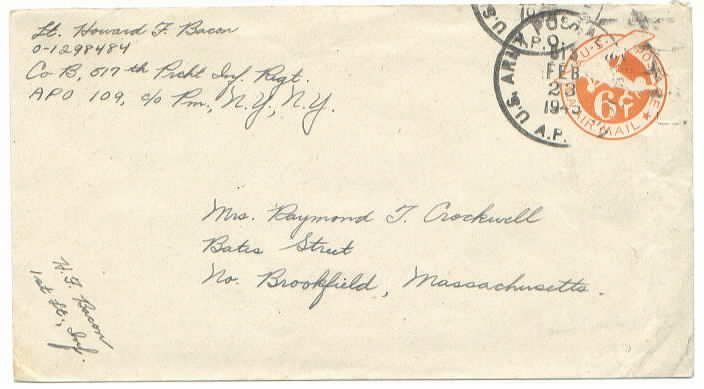 Lt. Howard F. Bacon
O-1298484
Co B, 517th Prcht Inf. Regt.
APO 109, c/o Pm, N.Y., N.Y.
U.S. ARMY POSTAL
A.P.O.
FEB
23
194
U.S. POSTAGE
6¢
AIR MAIL
Mrs. Raymond T. Crockwell
Bates Street
No. Brookfield, Massachusetts.
H. F. Bacon
1st Lt., Inf.